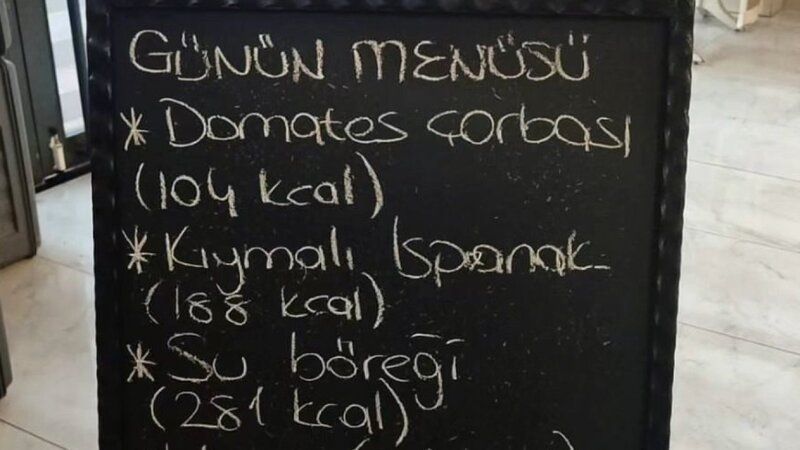 GÜNÜN MENÜSÜ
* Domates çorbası
(104 kcal)
* Kıymalı Ispanak
(188 kcal)
* Su böreği
(281 kcal)